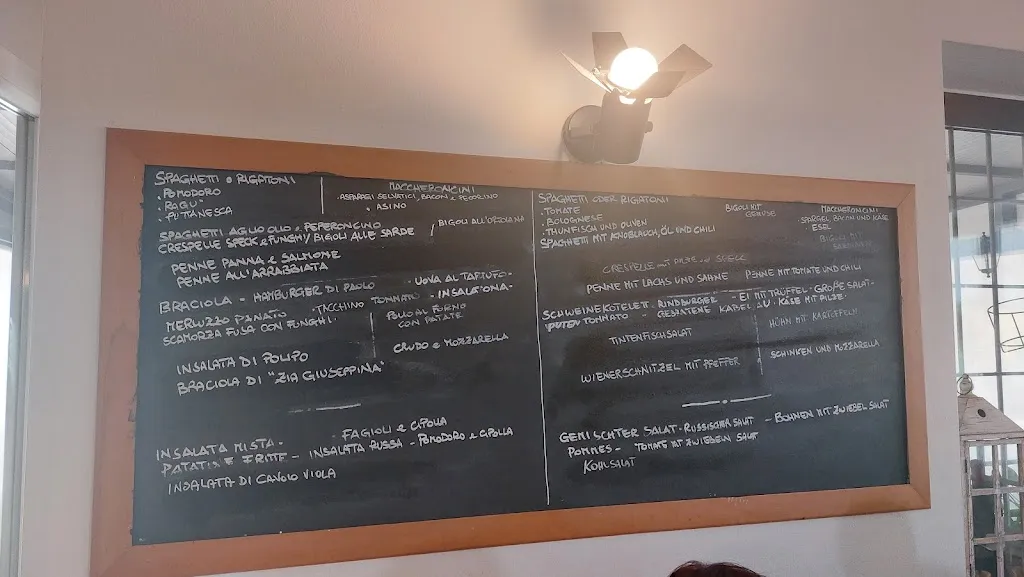 SPAGHETTI O RIGATONI
· POMODORO
· RAGU'
· PUTTANESCA
MACCHERONCINI
· ASPARAGI SELVATICI, BACON E PECORINO
· ASINO
SPAGHETTI AGLIO OLIO E PEPERONCINO
BIGOLI ALL'ORTOLANA
CRESPELLE SPECK E FUNGHI / BIGOLI ALLE SARDE
PENNE PANNA E SALMONE
PENNE ALL'ARRABBIATA
BRACIOLA - HAMBURGER DI PAOLO - UOVA AL TARTUFO -
MERLUZZO PANATO - TACCHINO TONNATO - INSALATONA -
SCAMORZA FUSA CON FUNGHI ·
POLLO AL FORNO
CON PATATE
INSALATA DI POLIPO
CRUDO E MOZZARELLA
BRACIOLA DI "ZIA GIUSEPPINA"
INSALATA MISTA - · FAGIOLI E CIPOLLA
PATATINE FRITTE - INSALATA RUSSA - POMODORO E CIPOLLA
INSALATA DI CAVOLO VIOLA
SPAGHETTI ODER RIGATONI
· TOMATE
· BOLOGNESE
· THUNFISCH UND OLIVEN
BIGOLI MIT
GEMÜSE
MACCHERONCINI
SPARGEL, BACON UND KÄSE
ESEL
SPAGHETTI MIT KNOBLAUCH, ÖL UND CHILI
BIGOLI MIT
SPECK
PENNE MIT LACHS UND SAHNE
PENNE MIT TOMATE UND CHILI
SCHWEINEKOTELETT RINDBURGER - EI MIT TRÜFFEL - GROßE SALAT -
TONNATO - KABEL KÄSE MIT PILZE ·
TINTENFISCHSALAT
HÜHN MIT KARTOFFELN
WIENERSCHNITZEL MIT PFEFFER
SCHINKEN UND MOZZARELLA
GEMISCHTER SALAT · RUSSISCHER SALAT - BOHNEN MIT ZWIEBEL SALAT
POMMES - TOMATE MIT ZWIEBELN SALAT
KOHLSALAT